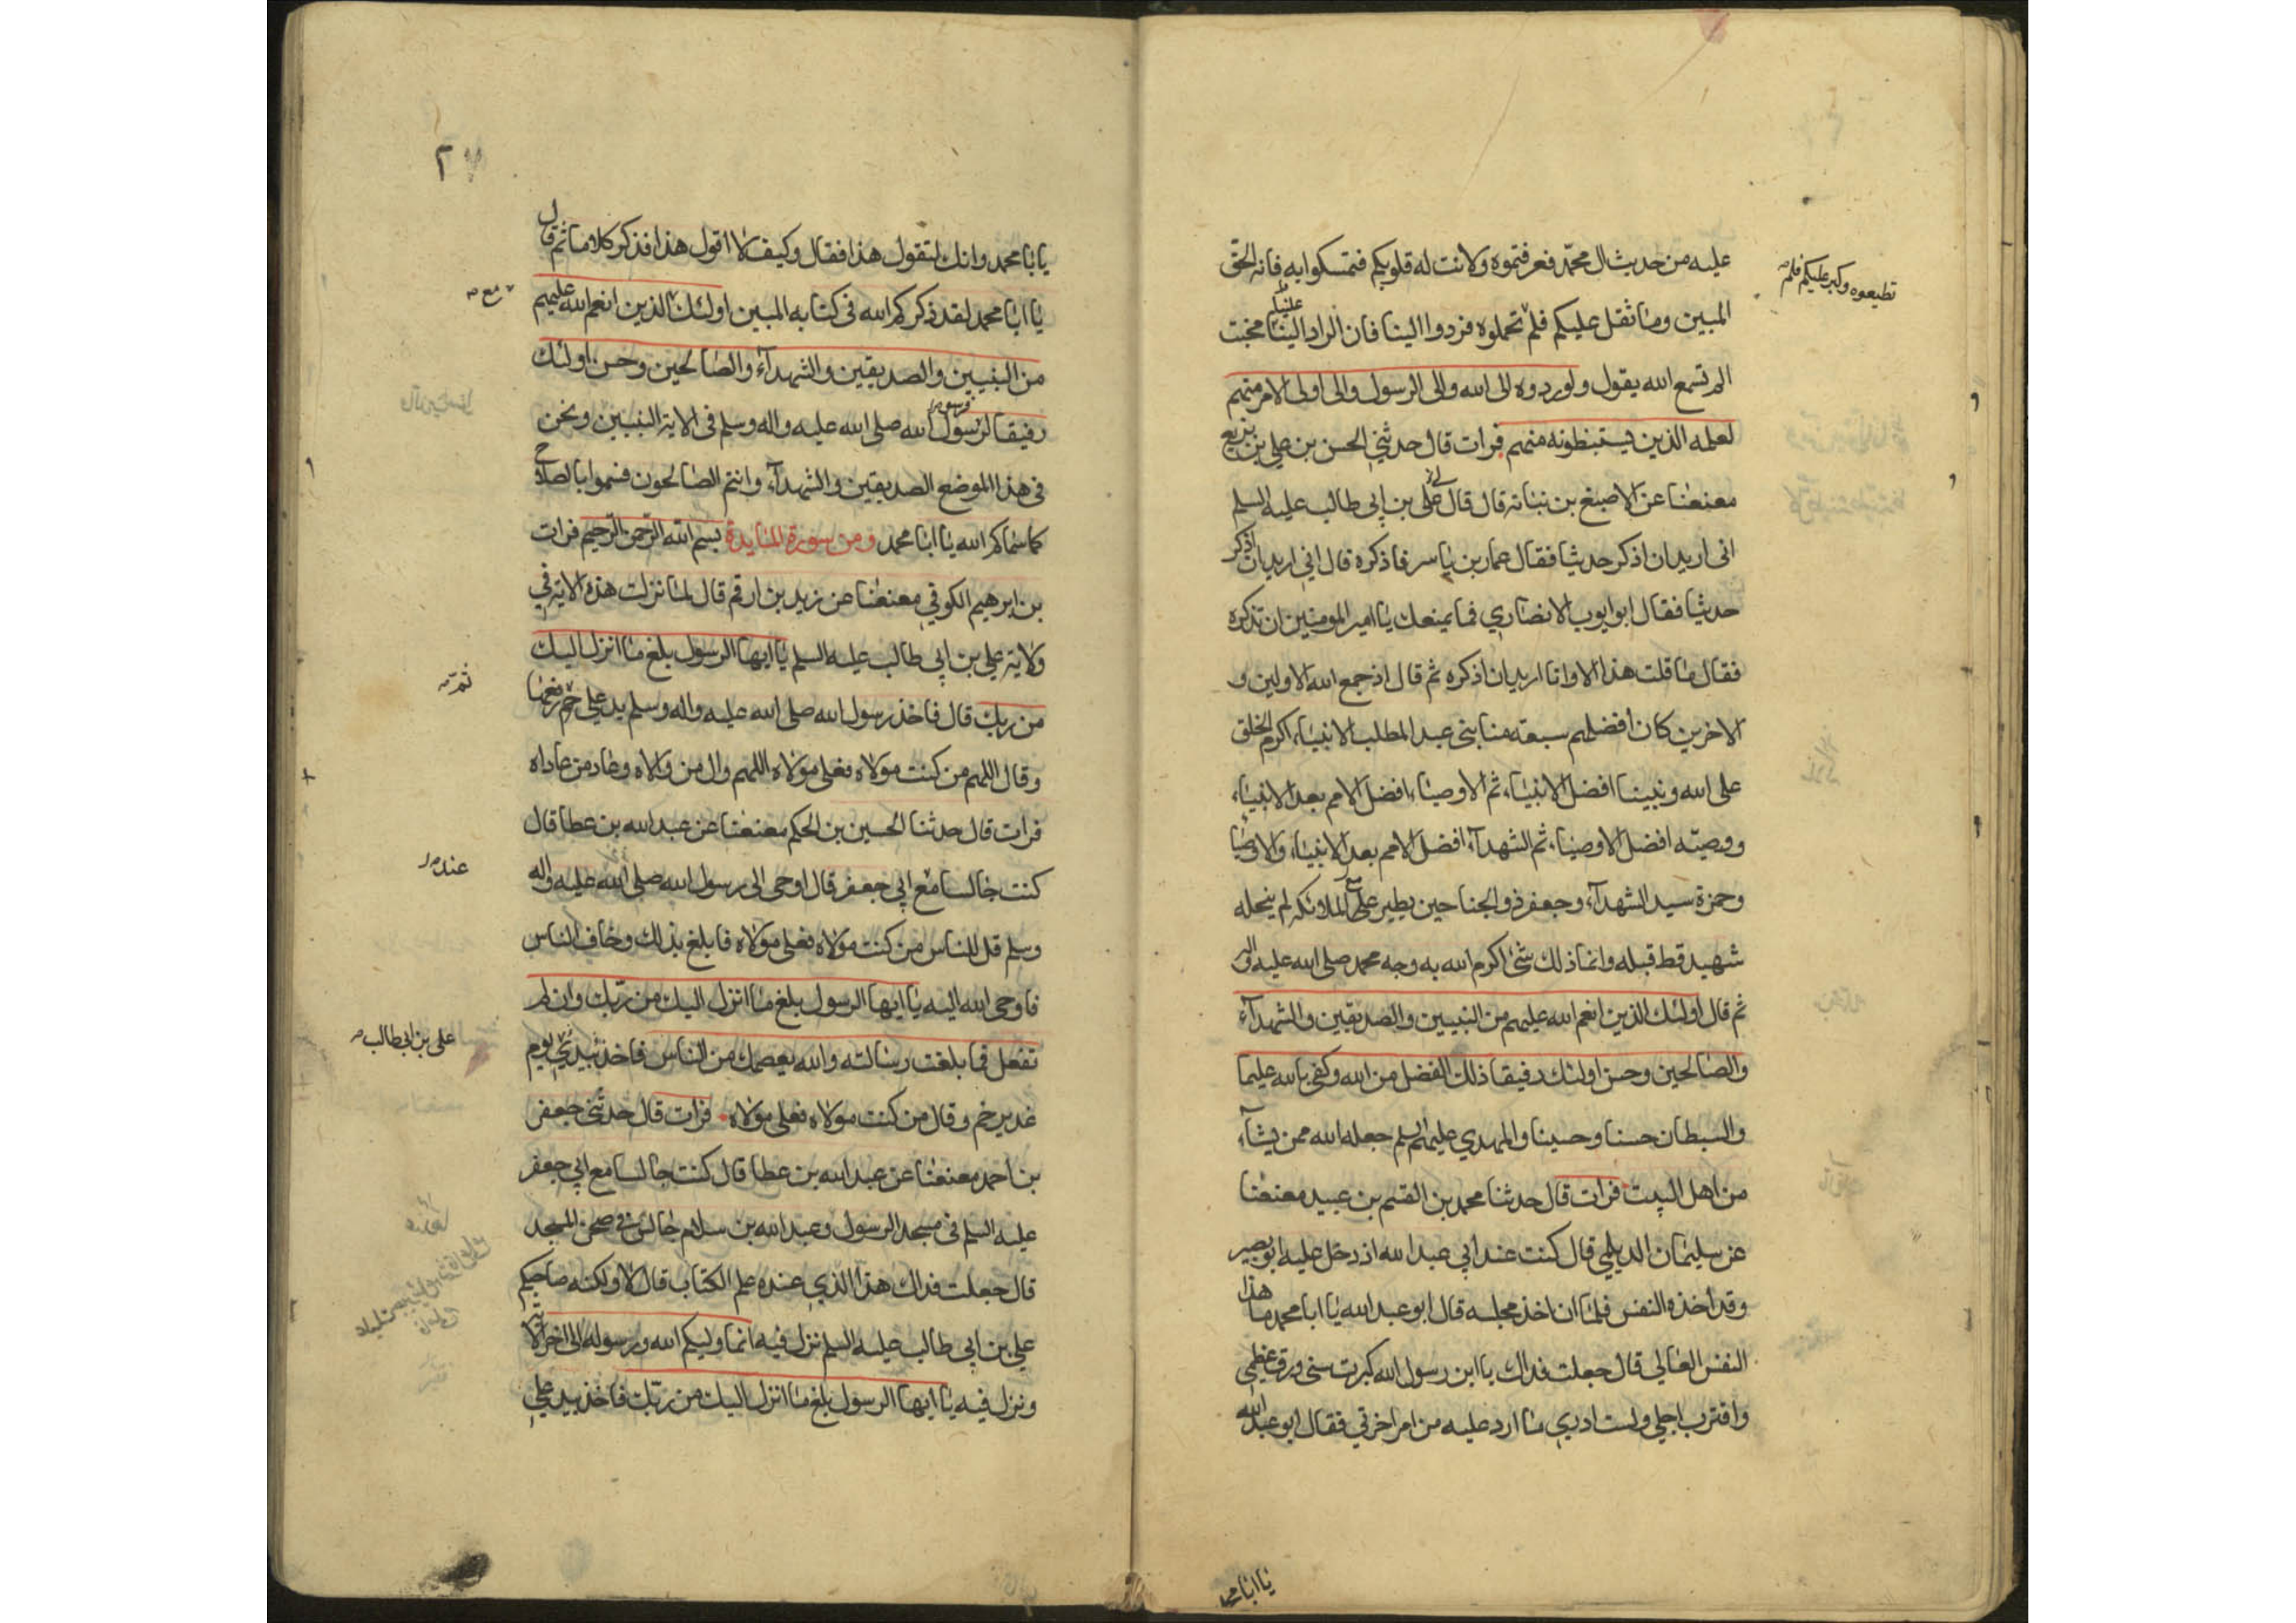 عليه من حديث ال محمد فعرفتموه ولانت له قلوبكم فتمسكوا به فانه الحق
تطيعوه وكبر عليكم فلم
المبين وما ثقل عليكم فلم تحملوه فردوا الينا فان الراد الينا مخبت
علينا
الم تسمع الله يقول ولو ردوه الى الله والى الرسول والى اولى الامر منهم
لعلمه الذين يستبنطونه منهم فرات قال حدثني الحسن بن علي بن بزيع
معنعنا عن الاصبغ بن نباته قال قال علي بن ابي طالب عليه السلم
انى اريد ان اذكر حديثا فقال عمار بن ياسر فاذكره قال اني اريد ان اذكر
حديثا فقال ابو ايوب الانصاري فما يمنعك يا امير المومنين ان تذكره
فقال ما قلت هذا الا وانا اريد ان اذكره ثم قال اذ جمع الله الاولين و
الاخرين كان افضلهم سبعة منا بني عبد المطلب الانبياء اكرم الخلق
على الله ونبينا افضل الانبياء ثم الاوصياء افضل الامم بعد الانبياء
ووصيّه افضل الاوصياء ثم الشهدآء افضل الامم بعد الانبياء والاوصيا
وحمزة سيد الشهدآء وجعفر ذو الجناحين يطير على الملائكة لم ينحله
مع
شهيد قط قبله وانما ذلك شئ اكرم الله به وجه محمد صلى الله عليه واله
ثم قال اولئك الذين انعم الله عليهم من النبيين والصديقين والشهدآء
والصالحين وحسن اولئك رفيقا ذلك الفضل من الله وكفى بالله عليما
والسبطان حسنا وحسينا والمهدي عليهم السلم جعله الله ممن يشآء
من اهل البيت فرات قال حدثنا محمد بن القسم بن عبيد معنعنا
عن سليمان الديلمي قال كنت عند ابي عبد الله اذ دخل عليه ابو بصير
وقد اخذه النفس فلما ان اخذ مجلسه قال ابو عبد الله يا ابا محمد ما هذا
النفس العالي قال جعلت فداك يا ابن رسول الله كبرت سنى ورق عظمي
واقترب اجلي ولست ادري ما ارد عليه من امر اخرتي فقال ابو عبد الله
يا ابا محمد
٢
يا ابا محمد وانك لتقول هذا فقال وكيف لا اقول هذا فذكر كلاما ثم قال
يا ابا محمد لقد ذكركم الله فى كتابه المبين اولئك الذين انعم الله عليهم
مع
من النبيين والصديقين والشهدآء والصالحين وحسن اولئك
رفيقا لرسول الله صلى الله عليه واله وسلم فى الاية النبيين ونحن
فرسول
فى هذا الموضع الصديقين والشهدآء وانتم الصالحون فسموا بالصلاح
كما سماكم الله يا ابا محمد ومن سورة المايدة بسم الله الرحمن الرحيم فرات
بن ابرهيم الكوفي معنعنا عن زيد بن ارقم قال لما نزلت هذه الاية في
ولاية علي بن ابي طالب عليه السلم يا ايها الرسول بلغ ما انزل اليك
من ربك قال فاخذ رسول الله صلى الله عليه واله وسلم يد علي خم رفعها
وقال اللهم من كنت مولاه فعلي مولاه اللهم وال من والاه وعاد من عاداه
فرات قال حدثنا الحسين بن الحكم معنعنا عن عبد الله بن عطا قال
كنت جالسا مع ابي جعفر قال اوحى الى رسول الله صلى الله عليه واله
عند
وسلم قل للناس من كنت مولاه فعلى مولاه فابلغ بذلك وخاف الناس
فاوحى الله اليه يا ايها الرسول بلغ ما انزل اليك من ربّك وان لم
تفعل فما بلغت رسالته والله يعصمك من الناس فاخذ بيد يوم
على بن ابى طالب
غدير خم وقال من كنت مولاه فعلي مولاه فرات قال حدثني جعفر
بن احمد معنعنا عن عبد الله بن عطا قال كنت جالسا مع ابي جعفر
عليه السلم فى مسجد الرسول وعبد الله بن سلام جالس في صحن المسجد
قال جعلت فداك هذا الذي عنده علم الكتاب قال لا ولكنه صاحبكم
علي بن ابي طالب عليه السلم نزل فيه انما وليكم الله ورسوله الى اخر الاية
ونزل فيه يا ايها الرسول بلغ ما انزل اليك من ربّك فاخذ بيد علي